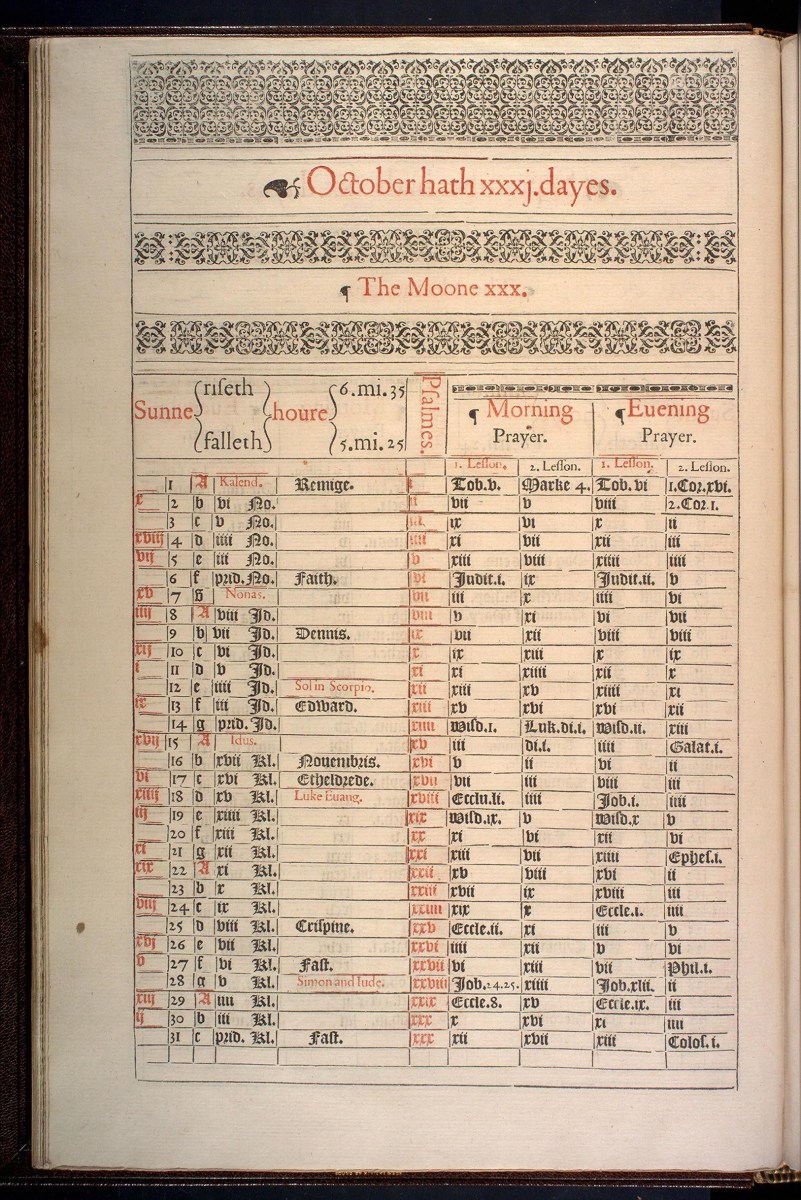 October hath xxxj. dayes.
¶ The Moone xxx.
Sunne riſeth falleth houre 6. mi. 35 5. mi. 25 Pſalmes. ¶ Morning Prayer. ¶ Euening Prayer.
1. Leſſon. 2. Leſſon. 1. Leſſon. 2. Leſſon.
1 A Kalend. Remige. i Tob.v. Marke 4. Tob.vi 1.Cor.xvi.
x 2 b vi No. ii vii v viii 2.Cor 1.
3 c v No. iii ix vi x ii
xviij 4 d iiii No. iiii xi vii xii iii
vij 5 e iii No. v xiii viii xiiii iiii
6 f prid. No. Faith. vi Judit.i. ix Judit.ii. v
xv 7 g Nonas. vii iii x iiii vi
iiij 8 A viii Id. viii v xi vi vii
9 b vii Id. Dennis. ix vii xii viii viii
xij 10 c vi Id. x ix xiii x ix
i 11 d v Id. xi xi xiiii xii x
12 e iiii Id. Sol in Scorpio. xii xiii xv xiiii xi
ix 13 f iii Id. Edward. xiii xv xvi xvi xii
14 g prid. Id. xiiii Wiſd.1. Luk.di.i. Wiſd.ii. xiii
xvij 15 A Idus. xv iii di.i. iiii Galat.i.
16 b xvii Kl. Nouembris. xvi v ii vi ii
vi 17 c xvi Kl. Etheldrede. xvii vii iii viii iii
xiiij 18 d xv Kl. Luke Euang. xviii Ecclu.li. iiii Job.i. iiii
iij 19 e xiiii Kl. xix Wiſd.ix. v Wiſd.x v
20 f xiii Kl. xx xi vi xii vi
xi 21 g xii Kl. xxi xiii vii xiiii Epheſ.i.
xix 22 A xi Kl. xxii xv viii xvi ii
23 b x Kl. xxiii xvii ix xviii iii
viij 24 c ix Kl. xxiiii xix x Eccle.i. iiii
25 d viii Kl. Criſpine. xxv Eccle.ii. xi iii v
xvj 26 e vii Kl. xxvi iiii xii v vi
v 27 f vi Kl. Faſt. xxvii vi xiii vii Phil.i.
28 g v Kl. Simon and Iude. xxviii Job.24.25. xiiii Job.xlii. ii
xiij 29 A iiii Kl. xxix Eccle.8. xv Eccle.ix. iii
ij 30 b iii Kl. xxx x xvi xi iiii
31 c prid. Kl. Faſt. xxx xii xvii xiii Coloſ.i.